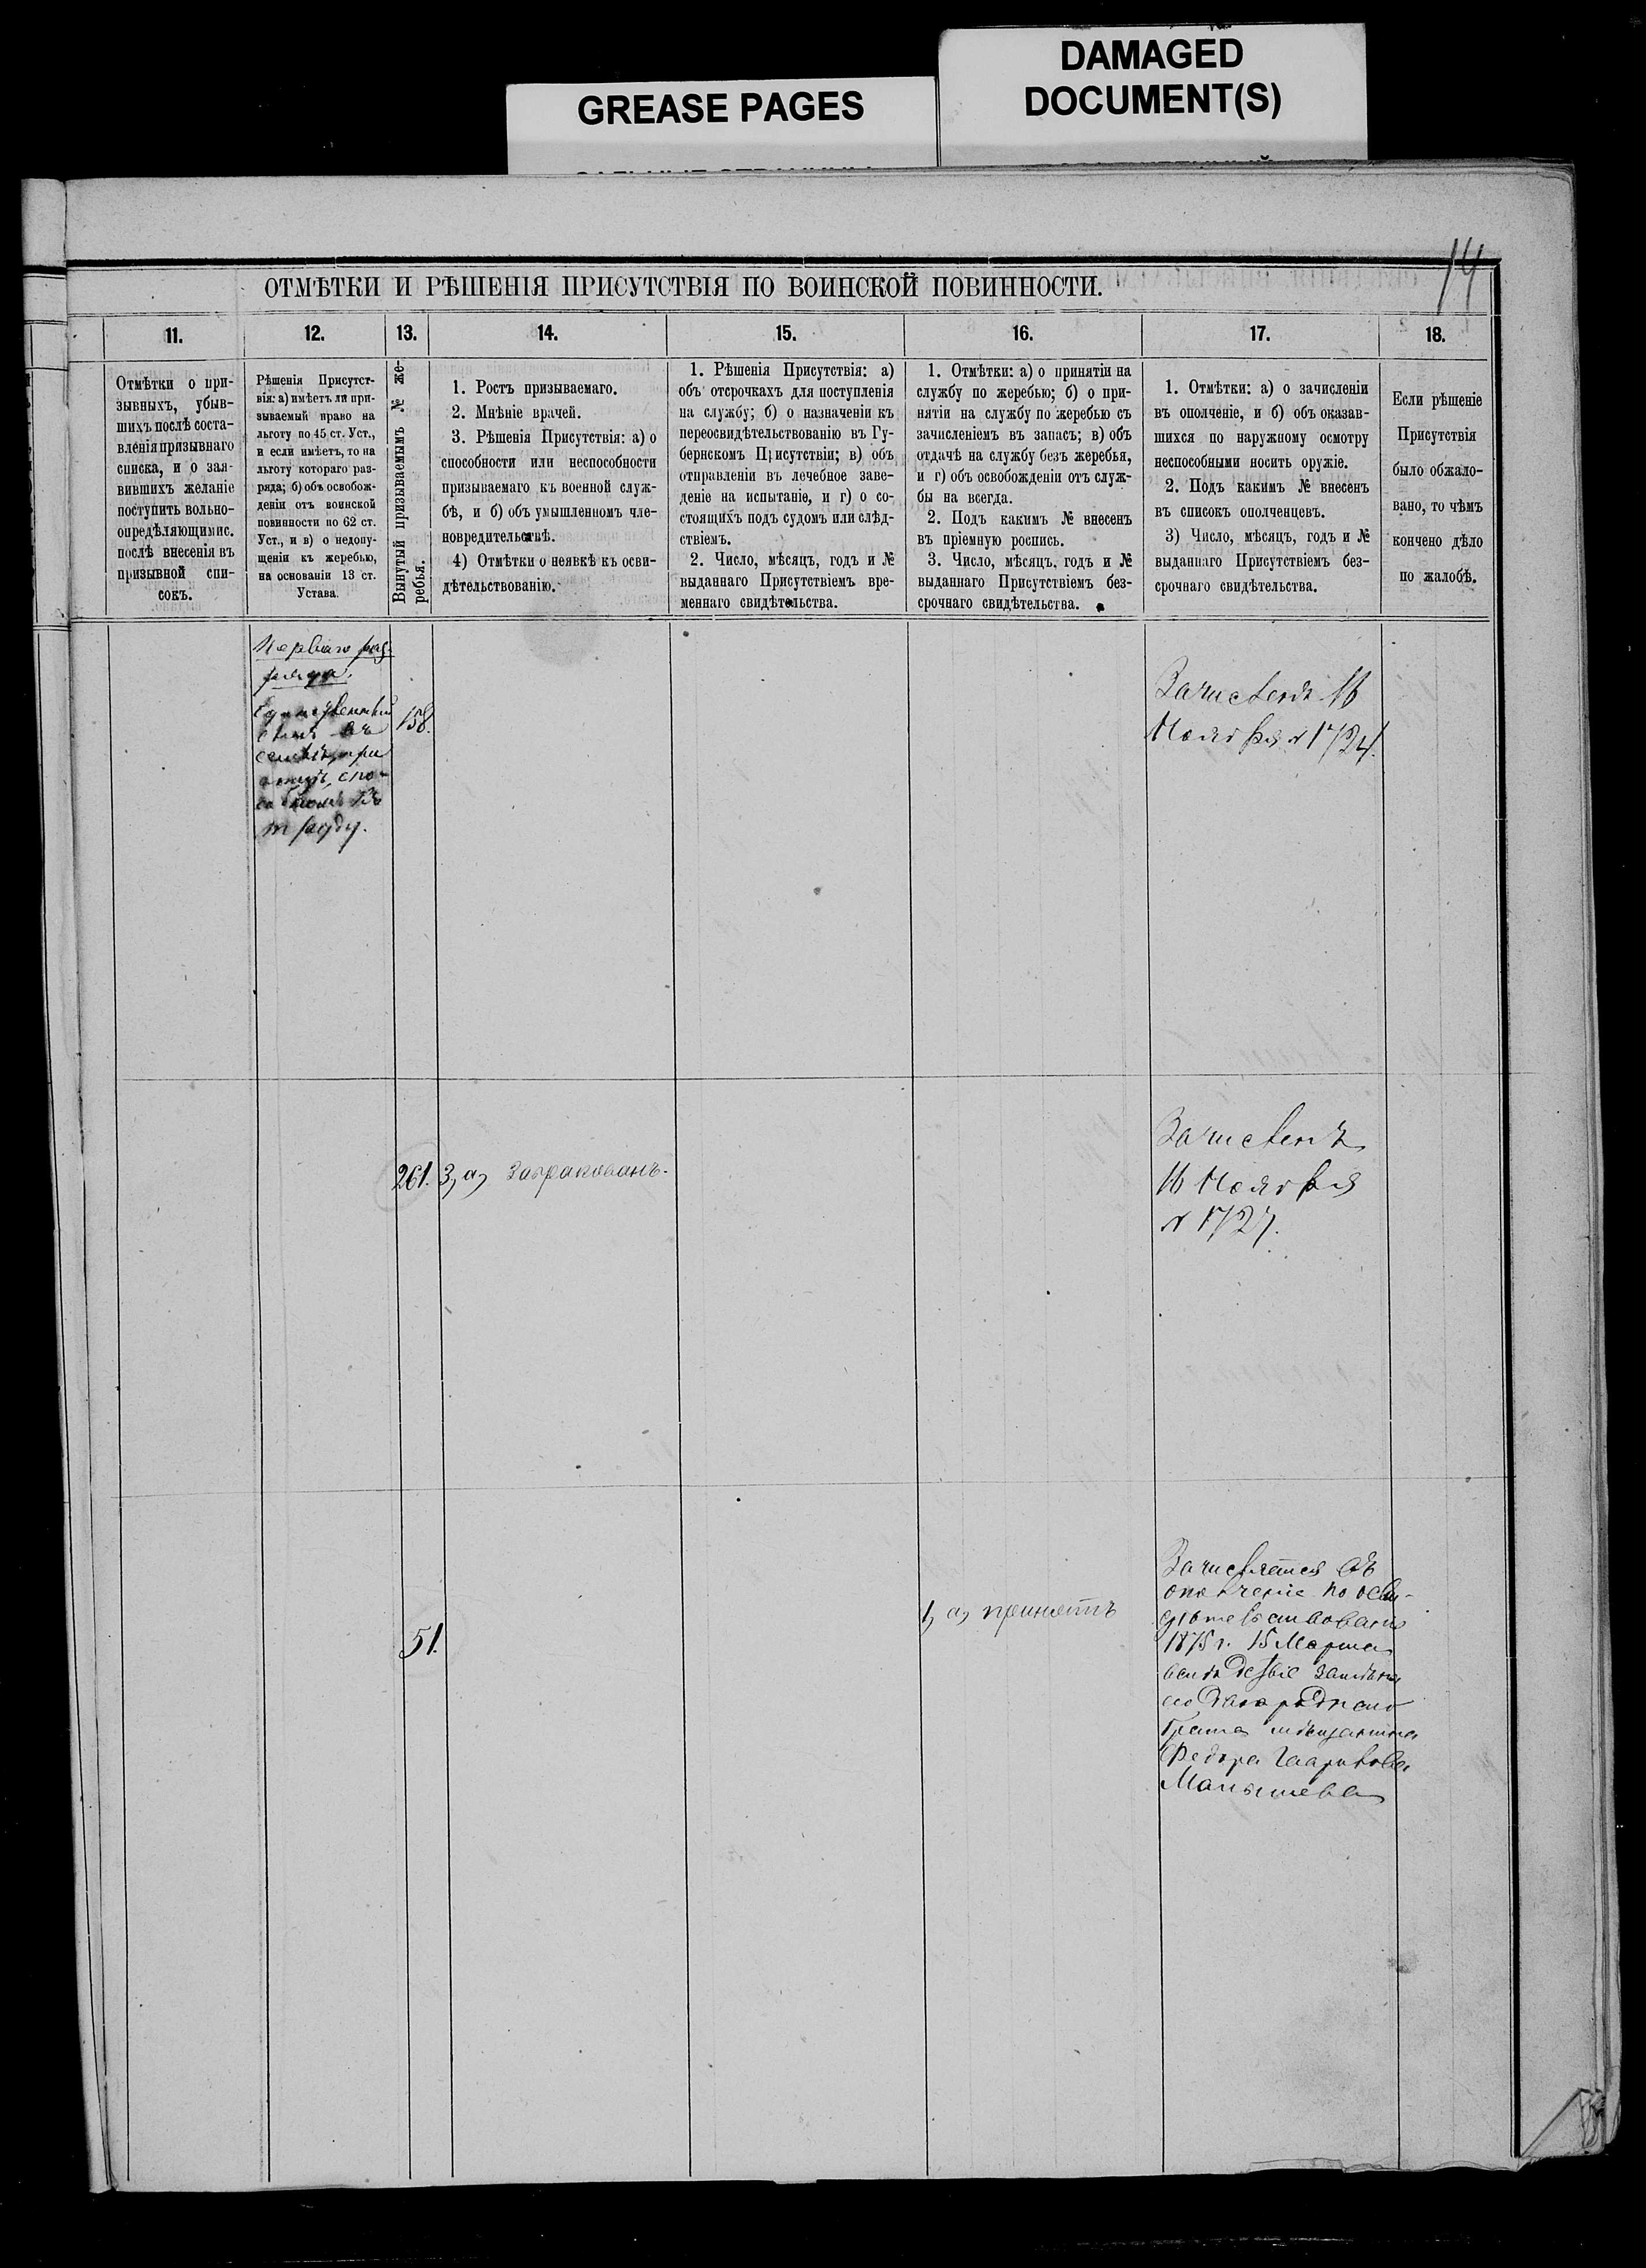 GREASE PAGES
DAMAGED
DOCUMENT(S)
14
ОТМѢТКИ И РѢШЕНІЯ ПРИСУТСТВІЯ ПО ВОИНСКОЙ ПОВИННОСТИ.
11.
12.
13.
14.
15.
16.
17.
18.
Отмѣтки о при-
зывныхъ, убыв-
шихъ послѣ соста-
вленія призывнаго
списка, и о зая-
вившихъ желаніе
поступить вольно-
опредѣляющимис.
послѣ внесенія въ
призывной спи-
сокъ.
Рѣшенія Присутст-
вія: а) имѣетъ ли при-
зываемый право на
льготу по 45 ст. Уст.,
и если имѣетъ, то на
льготу котораго раз-
ряда; б) объ освобож-
деніи отъ воинской
повинности по 62 ст.
Уст., и в) о недопу-
щеніи къ жеребью,
на основаніи 13 ст.
Устава.
Вынутый призываемымъ № же-
ребья.
1. Ростъ призываемаго.
2. Мнѣніе врачей.
3. Рѣшенія Присутствія: а) о
способности или неспособности
призываемаго къ военной служ-
бѣ, и б) объ умышленномъ чле-
новредительствѣ.
4) Отмѣтки о неявкѣ къ осви-
дѣтельствованію.
1. Рѣшенія Присутствія: а)
объ отсрочкахъ для поступленія
на службу; б) о назначеніи къ
переосвидѣтельствованію въ Гу-
бернскомъ Присутствіи; в) объ
отправленіи въ лечебное заве-
деніе на испытаніе, и г) о со-
стоящихъ подъ судомъ или слѣд-
ствіемъ.
2. Число, мѣсяцъ, годъ и №
выданнаго Присутствіемъ вре-
меннаго свидѣтельства.
1. Отмѣтки: а) о принятіи на
службу по жеребью; б) о при-
нятіи на службу по жеребью съ
зачисленіемъ въ запасъ; в) объ
отдачѣ на службу безъ жеребья,
и г) объ освобожденіи отъ служ-
бы на всегда.
2. Подъ какимъ № внесенъ
въ пріемную роспись.
3. Число, мѣсяцъ, годъ и №
выданнаго Присутствіемъ без-
срочнаго свидѣтельства.
1. Отмѣтки: а) о зачисленіи
въ ополченіе, и б) объ оказав-
шихся по наружному осмотру
неспособными носить оружіе.
2. Подъ какимъ № внесенъ
въ списокъ ополченцевъ.
3) Число, мѣсяцъ, годъ и №
выданнаго Присутствіемъ без-
срочнаго свидѣтельства.
Если рѣшеніе
Присутствія
было обжало-
вано, то чѣмъ
кончено дѣло
по жалобѣ.
Перваго раз-
ряда.
Единственный
сынъ въ
семьѣ, при
отцѣ, спо-
собномъ къ
труду.
158.
Зачисленъ 16
Ноября № 1724.
261.
3, а, Забракованъ.
Зачисленъ
16 Ноября
№ 1727.
51.
1, а, принятъ
Зачисляется въ
ополченіе по осви-
дѣтельствованію
1875 г. 15 Марта
брата мѣщанина
Федора